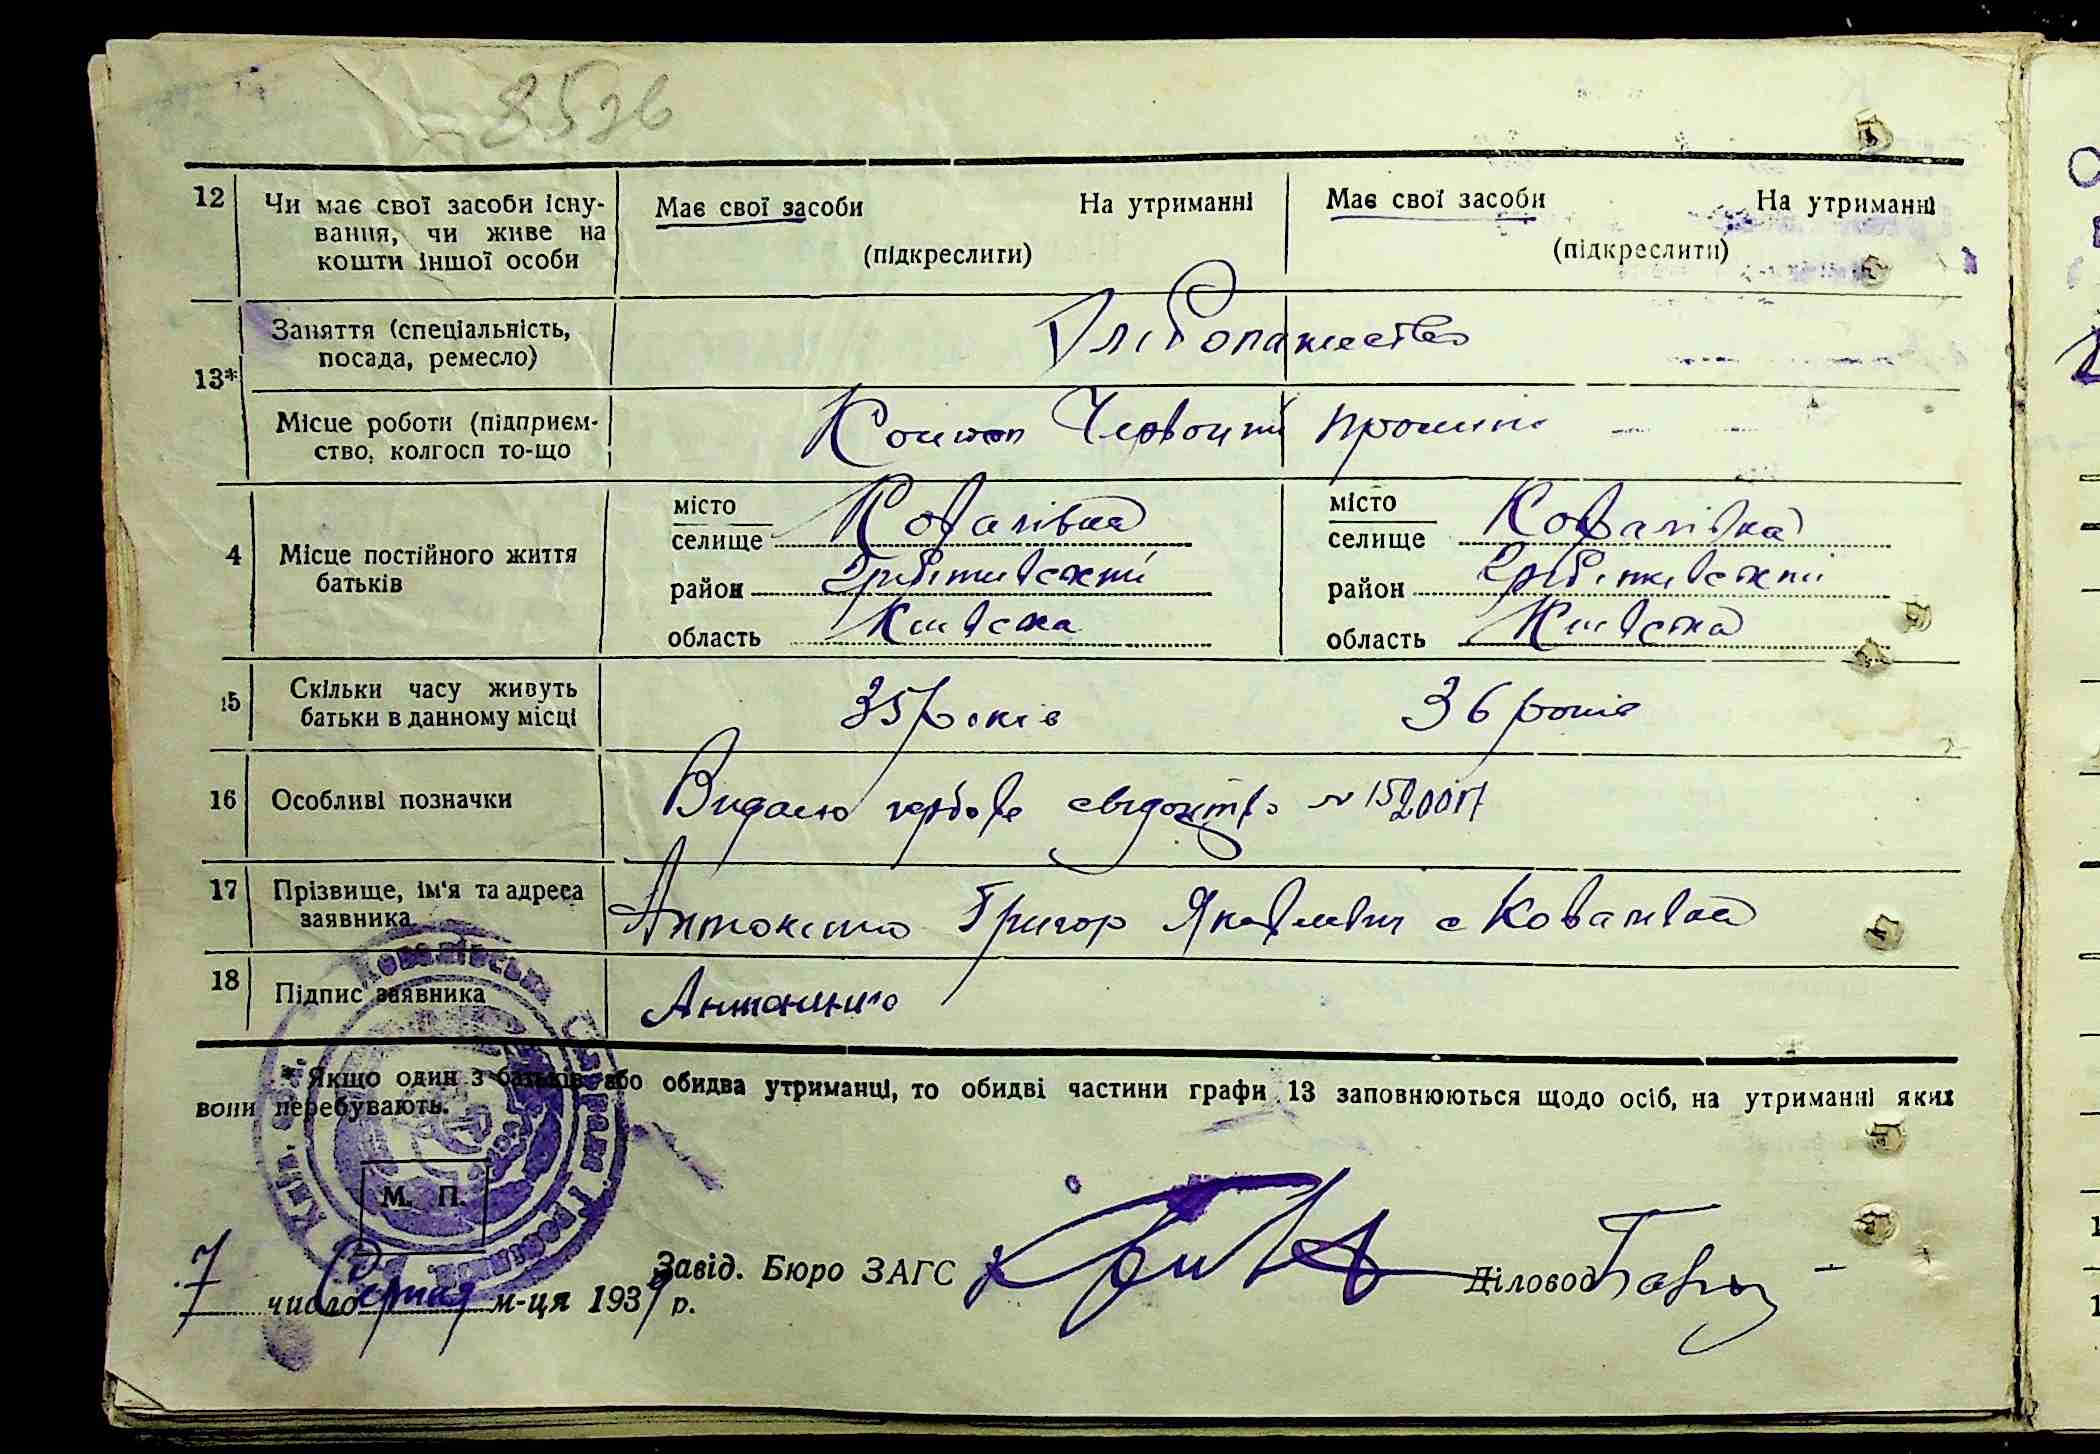 8526
12 Чи має свої засоби існу-
вання, чи живе на
кошти іншої особи
Має свої засоби На утриманні
(підкреслити)
Має свої засоби На утриманні
(підкреслити)
13* Заняття (спеціальність,
посада, ремесло)
Хліборобство
Місце роботи (підприєм-
ство, колгосп то-що
Колгосп Червоний промінь
4 Місце постійного життя
батьків
місто
селище Ковалівка
район Гребінківський
область Київська
місто
селище Ковалівка
район Гребінківський
область Київська
15 Скільки часу живуть
батьки в данному місці
35 років 36 років
16 Особливі позначки
Видано гербове свідоцтво №
17 Прізвище, ім'я та адреса
заявника
Григор Якович с Ковалівка
18 Підпис заявника
* Якщо один з батьків або обидва утриманці, то обидві частини графи 13 заповнюються щодо осіб, на утриманні яких
вони перебувають.
Ковалівська Сільрада
М. П.
7 число Серпня м-ця 1939 р.
Завід. Бюро ЗАГС
Діловод